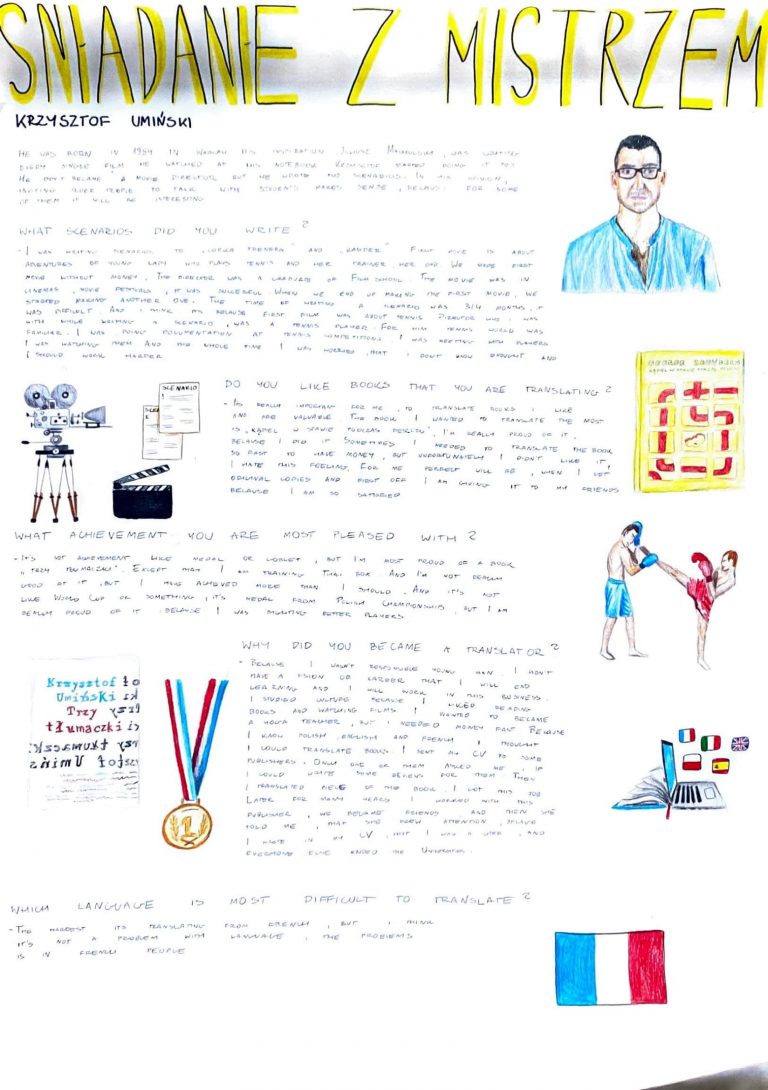 ŚNIADANIE Z MISTRZEM
KRZYSZTOF UMIŃSKI
HE WAS BORN IN 1984 IN WARSAW HIS INSPIRATION JULIUSZ MACHULSKI, WAS WRITING
EVERY SINGLE FILM HE WATCHED AT HIS NOTEBOOK KRZYSZTOF STARTED DOING IT TOO
HE DIDN'T BECAME A MOVIE DIRECTOR BUT HE WROTE TWO SCENARIOS. IN HIS OPINION,
INVITING OLDER PEOPLE TO TALK WITH STUDENTS MAKES SENSE, BECAUSE FOR SOME
OF THEM IT WILL BE INTERESING
WHAT SCENARIOS DID YOU WRITE?
- I WAS WRITING SCENARIOS TO „CÓRKA TRENERA" AND „KAMPER" FIRST MOVIE IS ABOUT
ADVENTURES OF YOUNG LADY WHO PLAYS TENNIS AND HER TRAINER HER DAD. WE MADE FIRST
MOVIE WITHOUT MONEY. THE DIRECTOR WAS A GRADUATE OF FILM SCHOOL. THE MOVIE WAS IN
CINEMAS, MOVIE FESTIVALS, IT WAS SUCCESFUL. WHEN WE END UP MAKING THE FIRST MOVIE, WE
STARTED MAKING ANOTHER ONE. THE TIME OF WRITING A SCENARIO WAS 3/4 MONTHS, IT
WAS DIFFICULT. AND I THINK ITS BECAUSE FIRST FILM WAS ABOUT TENNIS. DIRECTOR WHO I WAS
WITH WHILE WRITING A SCENARIO, WAS A TENNIS PLAYER. FOR HIM TENNIS WORLD WAS
FAMILIAR. I WAS DOING DOCUMENTATION AT TENNIS COMPETITIONS. I WAS MEETING WITH PLAYERS
I WAS WATCHING THEM AND THE WHOLE TIME I WAS WORRIED, THAT I DON'T KNOW ENOUGHT AND
I SHOULD WORK HARDER
SCENARIO
SCENARIO
DO YOU LIKE BOOKS THAT YOU ARE TRANSLATING?
- ITS REALLY IMPORTANT FOR ME, TO TRANSLATE BOOKS I LIKE
AND ARE VALUABLE THE BOOK I WANTED TO TRANSLATE THE MOST
IS „KĄPIEL W STAWIE PODCZAS DESZCZU" I'M REALLY PROUD OF IT,
BECAUSE I DID IT SOMETIMES I NEEDED TO TRANSLATE THE BOOK
SO FAST TO HAVE MONEY, BUT UNFORTUNATELY I DIDN'T LIKE IT
I HATE THIS FEELING, FOR ME PERFECT WILL BE, WHEN I GET
ORIGINAL COPIES AND FIRST OFF I AM GIVING IT TO MY FRIENDS
BECAUSE I AM SO SATISFIED
GEORGE SAUNDERS
KĄPIEL W STAWIE PODCZAS DESZCZU
WHAT ACHIEVEMENT YOU ARE MOST PLEASED WITH?
- IT'S NOT ACHIEVEMENT LIKE MEDAL OR GOBLET, BUT I'M MOST PROUD OF A BOOK
„TRZY TŁUMACZKI". EXCEPT THAT I AM TRAINING THAI BOX AND I'M NOT REALLY
GOOD AT IT, BUT I HAVE ACHIEVED MORE THAN I SHOULD. AND IT'S NOT
LIKE WORLD CUP OR SOMETHING, IT'S MEDAL FROM POLISH CHAMPIONSHIP, BUT I AM
REALLY PROUD OF IT BECAUSE I WAS FIGHTING BETTER PLAYERS
WHY DID YOU BECAME A TRANSLATOR?
- BECAUSE I WASN'T RESPONSIBLE YOUNG MAN. I DIDN'T
HAVE A VISION OR CAREER THAT I WILL END
LEARNING AND I WILL WORK IN THIS BUSINESS
I STUDIED CULTURE BECAUSE I LIKED READING
BOOKS AND WATCHING FILMS I WANTED TO BECAME
A TEACHER, BUT I NEEDED MONEY FAST BECAUSE
I KNOW POLISH, ENGLISH AND FRENCH I THOUGHT
I COULD TRANSLATE BOOKS. I SENT MY CV TO SOME
PUBLISHERS. ONLY ONE OF THEM ASKED ME IF
I COULD WRITE SOME REVIEWS FOR THEM THEN
I TRANSLATED PIECE OF THE BOOK. I GOT THIS JOB
LATER FOR MANY YEARS I WORKED WITH THIS
PUBLISHER, WE BECAME FRIENDS AND THEN SHE
TOLD ME, THAT SHE DREW ATTENTION, BECAUSE
I WROTE IN MY CV, THAT I WAS A, AND
EVERYONE ELSE ENDED THE UNIVERSITIES.
Krzysztof
Umiński
Trzy
tłumaczki
1
WHICH LANGUAGE IS MOST DIFFICULT TO TRANSLATE?
- THE HARDEST ITS TRANSLATING FROM FRENCH, BUT I THINK
IT'S NOT A PROBLEM WITH LANGUAGE, THE PROBLEMS
IS IN FRENCH PEOPLE